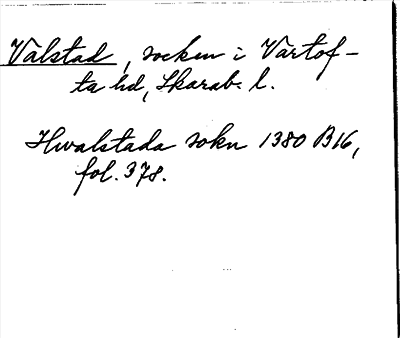 Vålstad, socken i Vartof-
ta hd, Skarab. l.
Hwalstada sokn 1380 B16,
fol. 378.